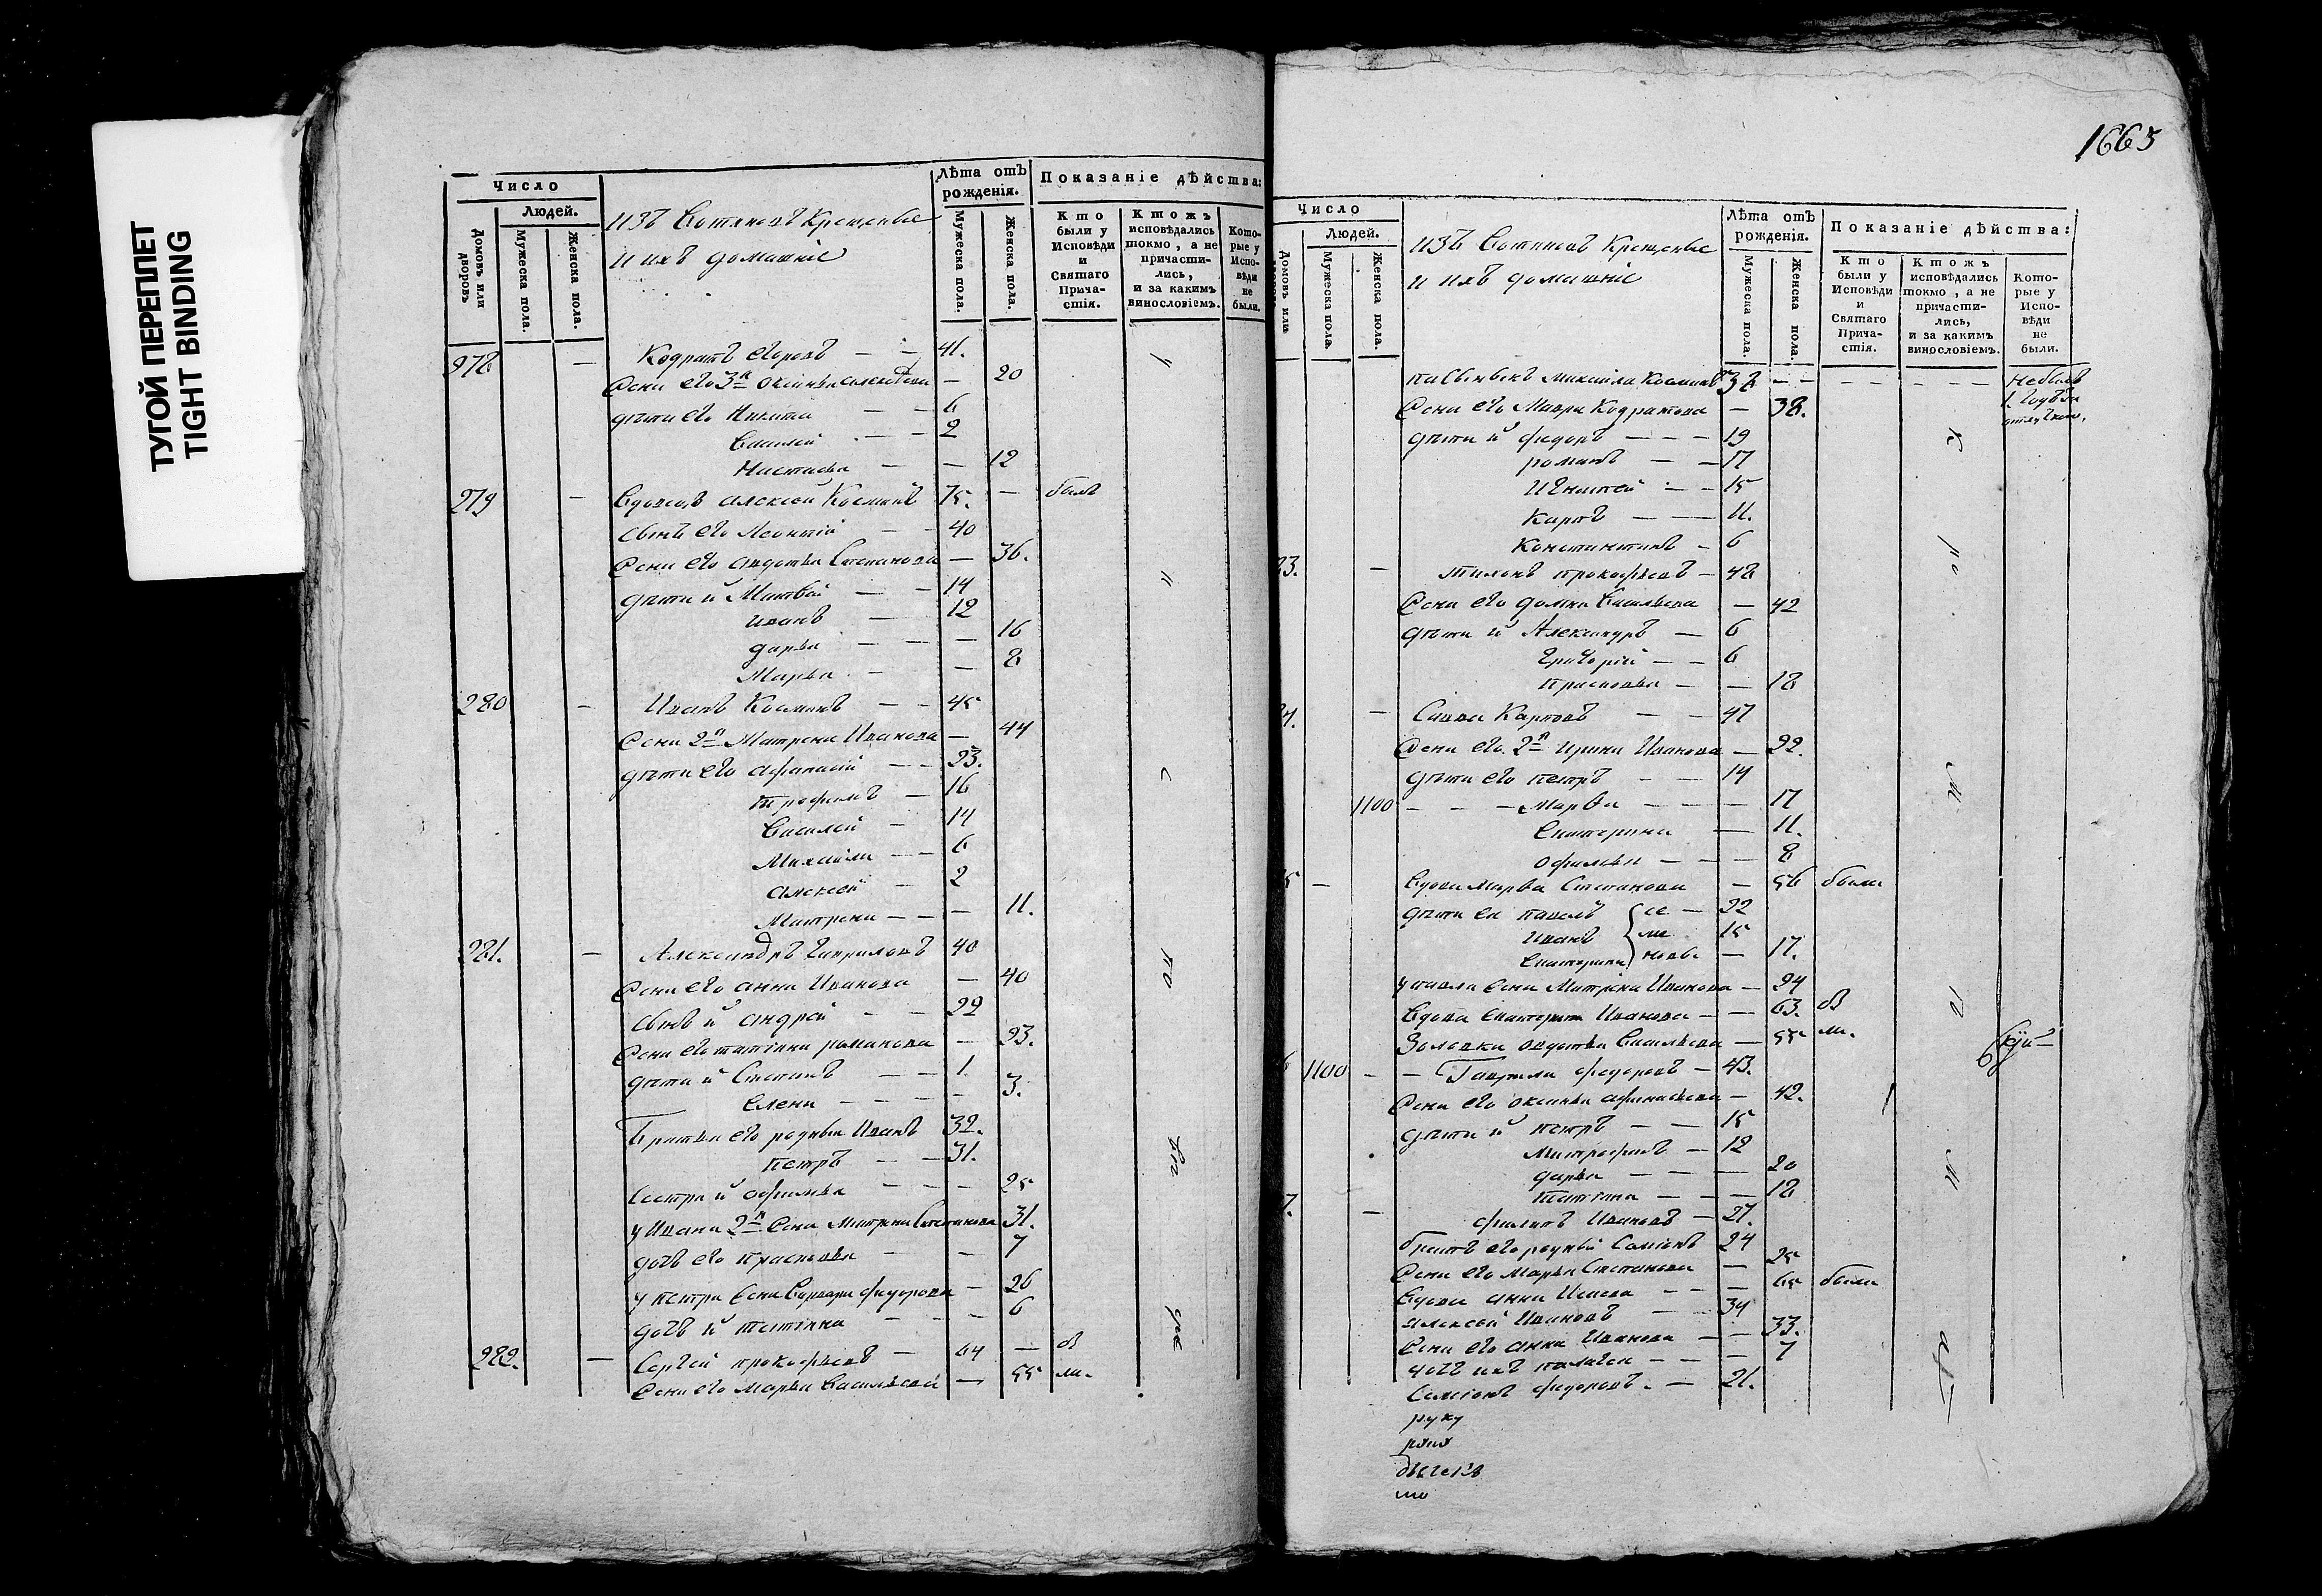 ТУГОЙ ПЕРЕПЛЕТ
TIGHT BINDING
Число
Людей.
Домовъ или дворовъ
Мужеска пола.
Женска пола.
изъ Вотяковъ Крещеные
и ихъ домашнiе
Лѣта отъ рожденія.
Мужеска пола.
Женска пола.
Показаніе дѣйства:
Кто были у Исповѣди и Святаго Прича-стія.
Ктожъ исповѣдались токмо, а не причасти-лись, и за какимъ винословіемъ.
Кото-рые у Испо-вѣди не были.
278 — Кодратъ Егоровъ — 41.
Жена его 3я — 20
дѣти его Никита — — 6
Василей — — 2
Настасья — — 12
279 — Вдовецъ алексей Косминъ 75. — былъ
сынъ его Леонтiй — 40
Жена его авдотья Степанова — 36.
дѣти и Матвѣй — — 14
иванъ — 12
дарья — — — 16
Марья — — 8
280 — Иванъ Косминъ — — 45
Жена 2я Матрена Иванова — 44
дѣти его афанасiй — — 23.
трофимъ — 16
Василей — 14
Михаила — — 6
алексей — 2
Матрена — — — 11.
281. — Александръ Гавриловъ 40
Жена его анна Иванова — 40
сынъ и андрей — — 22
Жена его татiяна романова — 23.
дѣти и Степанъ — — 1
Елена — — — — 3.
Братья его родныя Иванъ 32.
петръ — — 31.
Сестра и афимья — — — 25
у Ивана 2я Жена Матрена Степанова 31.
дочь его прасковья — — 7
у петра Жена Варвара федорова — 26
дочь и татiяна — — — 6
282. — Сергей прокофьевъ — 64 — бы
Жена его Марья Васильева — 55 ли.
1665
Число
Людей.
Домовъ или
Мужеска пола.
Женска пола.
изъ Вотяковъ Крещеные
и ихъ домашнiе
Лѣта отъ рожденія.
Мужеска пола.
Женска пола.
Показаніе дѣйства:
Кто были у Исповѣди и Святаго Прича-стія.
Ктожъ исповѣдались токмо, а не причасти-лись, и за какимъ винословіемъ.
Кото-рые у Испо-вѣди не были.
пасынокъ михаила Косминъ 38 — — — — — — — — Небылъ
Жена его Мавра Кодратова — 38.
дѣти и федоръ — — — 19
романъ — — 17
Игнатей — — 15
Карпъ — — — 11.
Константинъ — 6
23. — тихонъ прокофьевъ — 48
Жена его домна Васильева — 42
дѣти и Александръ — 6
григорiй — — 6
Прасковья — — 18
24. — Савва Карповъ — — 47
Жена его 2я ирина Иванова — 22.
дѣти его петръ — — 14
1100 — — — Марья — — — — 17
Екатерина — 11.
офимья — — — 8
5 — Вдова марья Степанова — 56 была
дѣти ея павелъ се — 22
иванъ ме 15
Екатерина новы — 17.
у павла Жена Матрена Иванова — 24
Вдова Екатерина Иванова — — 63. бы
Золовка авдотья Васильева — 55 ли.
6 1100 — — Гаврила федоровъ — 43.
Жена его оксинья афанасьева — 42.
дѣти и петръ — — 15
Митрофанъ — 12
дарья — — — — 20
татiяна — — — 18
7. — филипъ Ивановъ — 27.
братъ его родный Семiонъ 24
Жена его Марья Степанова — 25
Вдова анна Исаева — — — 65 была
алексей Ивановъ — — 34
Жена его анна Иванова — — 33.
дочь ихъ палагея — — — 7
Семiонъ федоровъ — 21.
руку